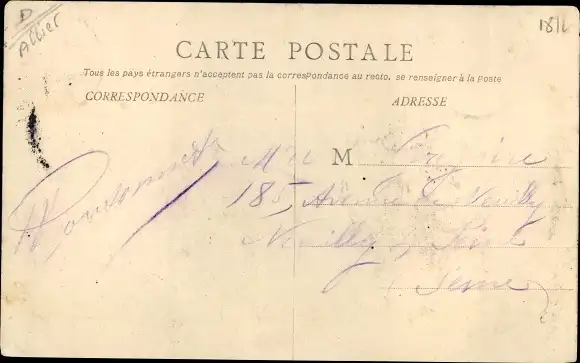 D
Allier
1816
CARTE POSTALE
Tous les pays étrangers n'acceptent pas la correspondance au recto. se renseigner à la Poste
CORRESPONDANCE
ADRESSE
M
185, Avenue de Neuilly
Neuilly s/ Seine
Seine